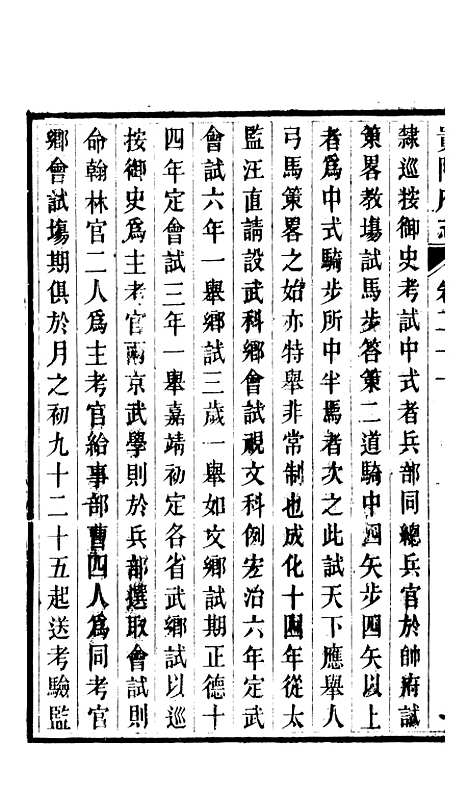 貴陽府志 卷二十一
隸巡按御史考試中式者兵部同總兵官於帥府試
策畧教塲試馬步答策二道騎中四矢步四矢以上
者爲中式騎步所中半馬者次之此試天下應舉人
弓馬策畧之始亦特舉非常制也成化十四年從太
監汪直請設武科鄉會試視文科例宏治六年定武
會試六年一舉鄉試三歲一舉如文鄉試期正德十
四年定會試三年一舉嘉靖初定各省武鄉試以巡
按御史爲主考官兩京武學則於兵部選取會試則
命翰林官二人爲主考官給事部曹四人爲同考官
鄉會試塲期俱於月之初九十二十五起送考驗監